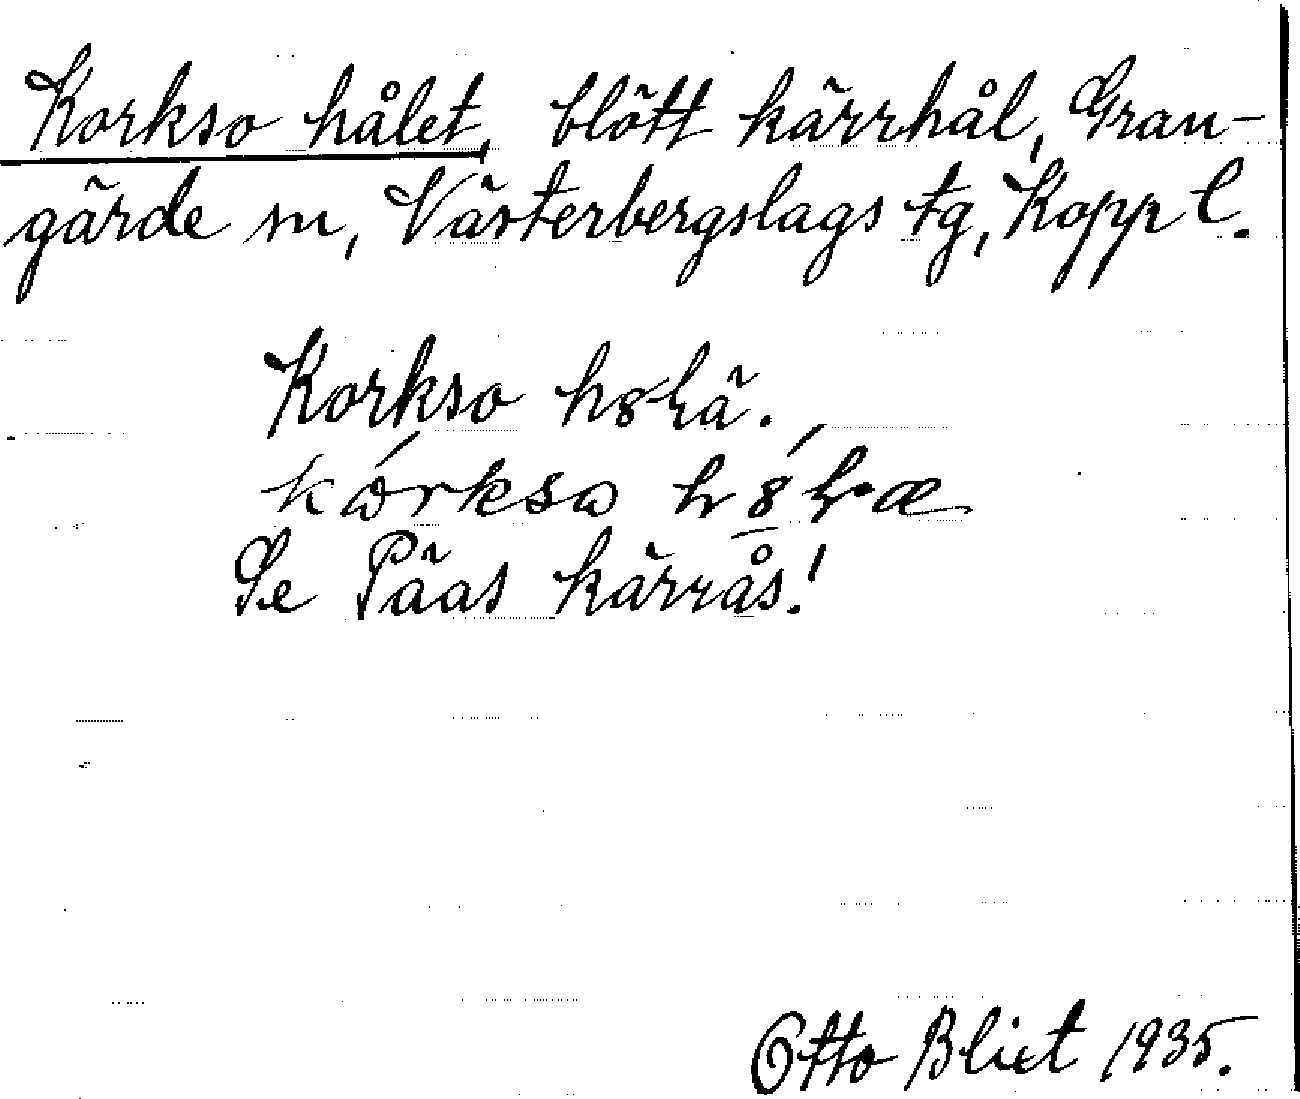 Korkso hålet, blött kärrhål, Gran-
gärde sn, Västerbergslags tg, Kopp l.
Korkso
Se Päas kärrås!
Otto Bliet 1935.